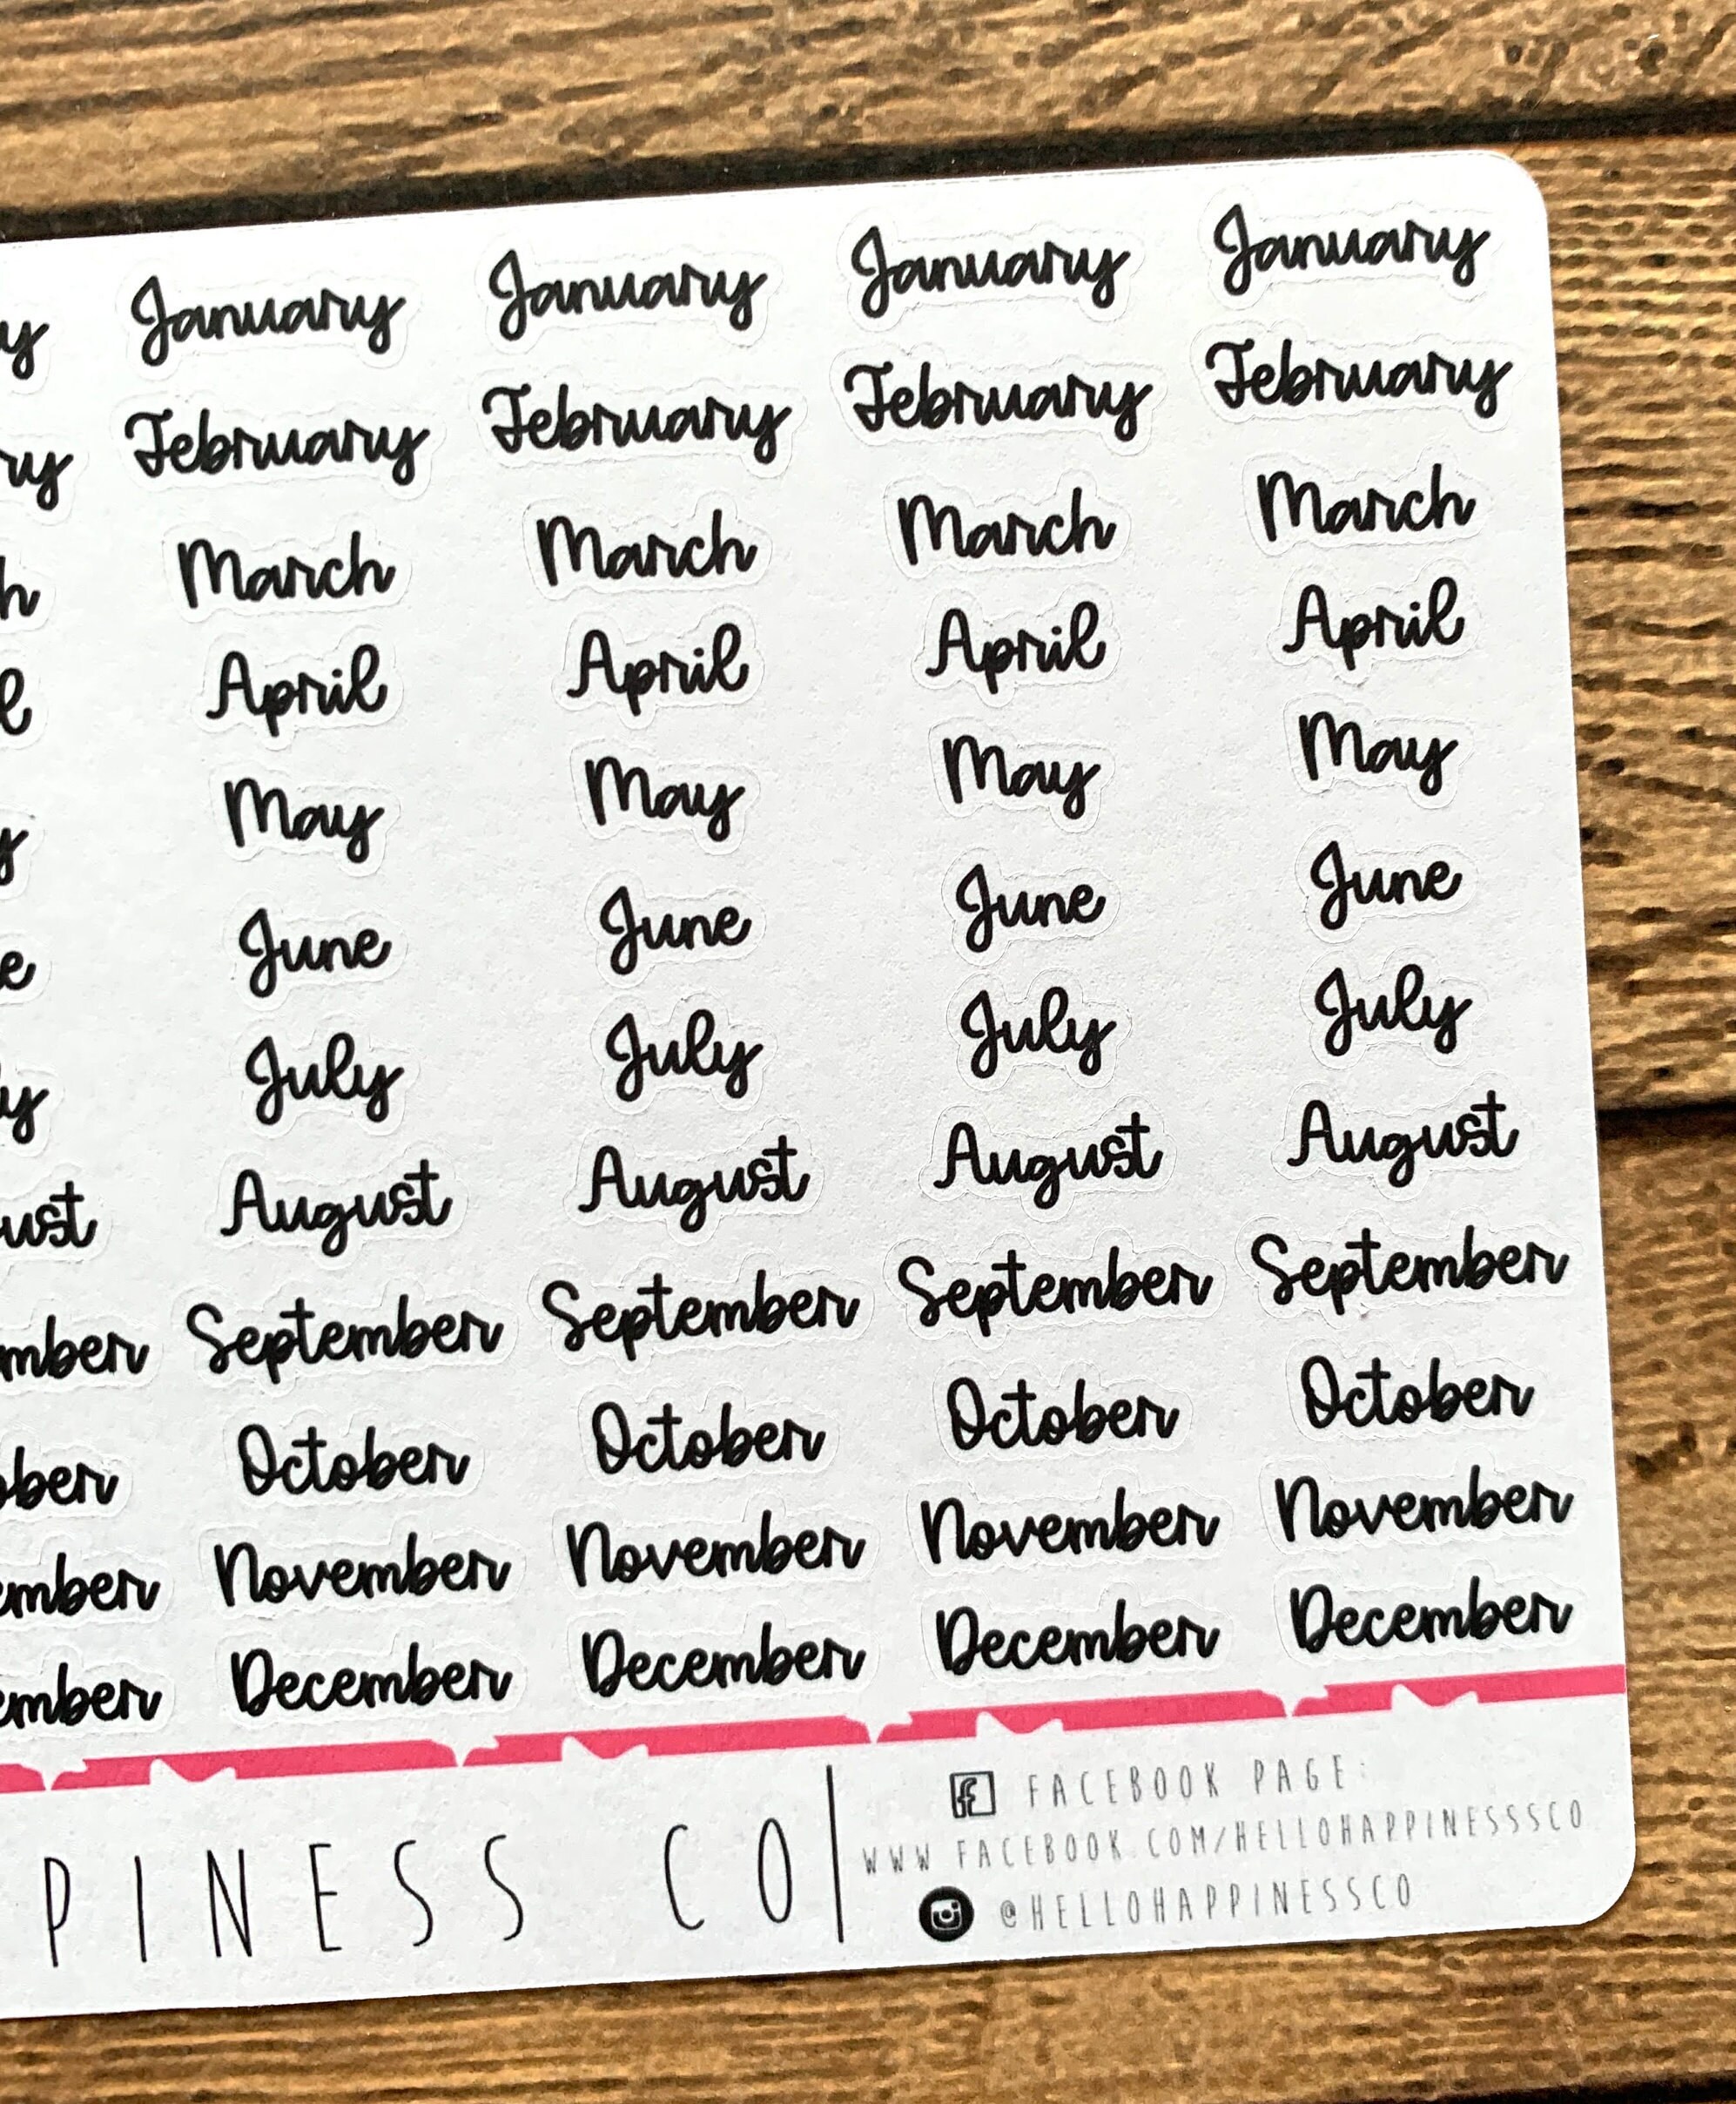 y January January January January
ry February February February February
h March March March March
l April April April April
y May May May May
e June June June June
ly July July July July
ust August August August August
mber September September September September
ober October October October October
ember November November November November
ember December December December December
PINESS CO
FACEBOOK PAGE:
WWW.FACEBOOK.COM/HELLOHAPPINESSSCO
@HELLOHAPPINESSCO